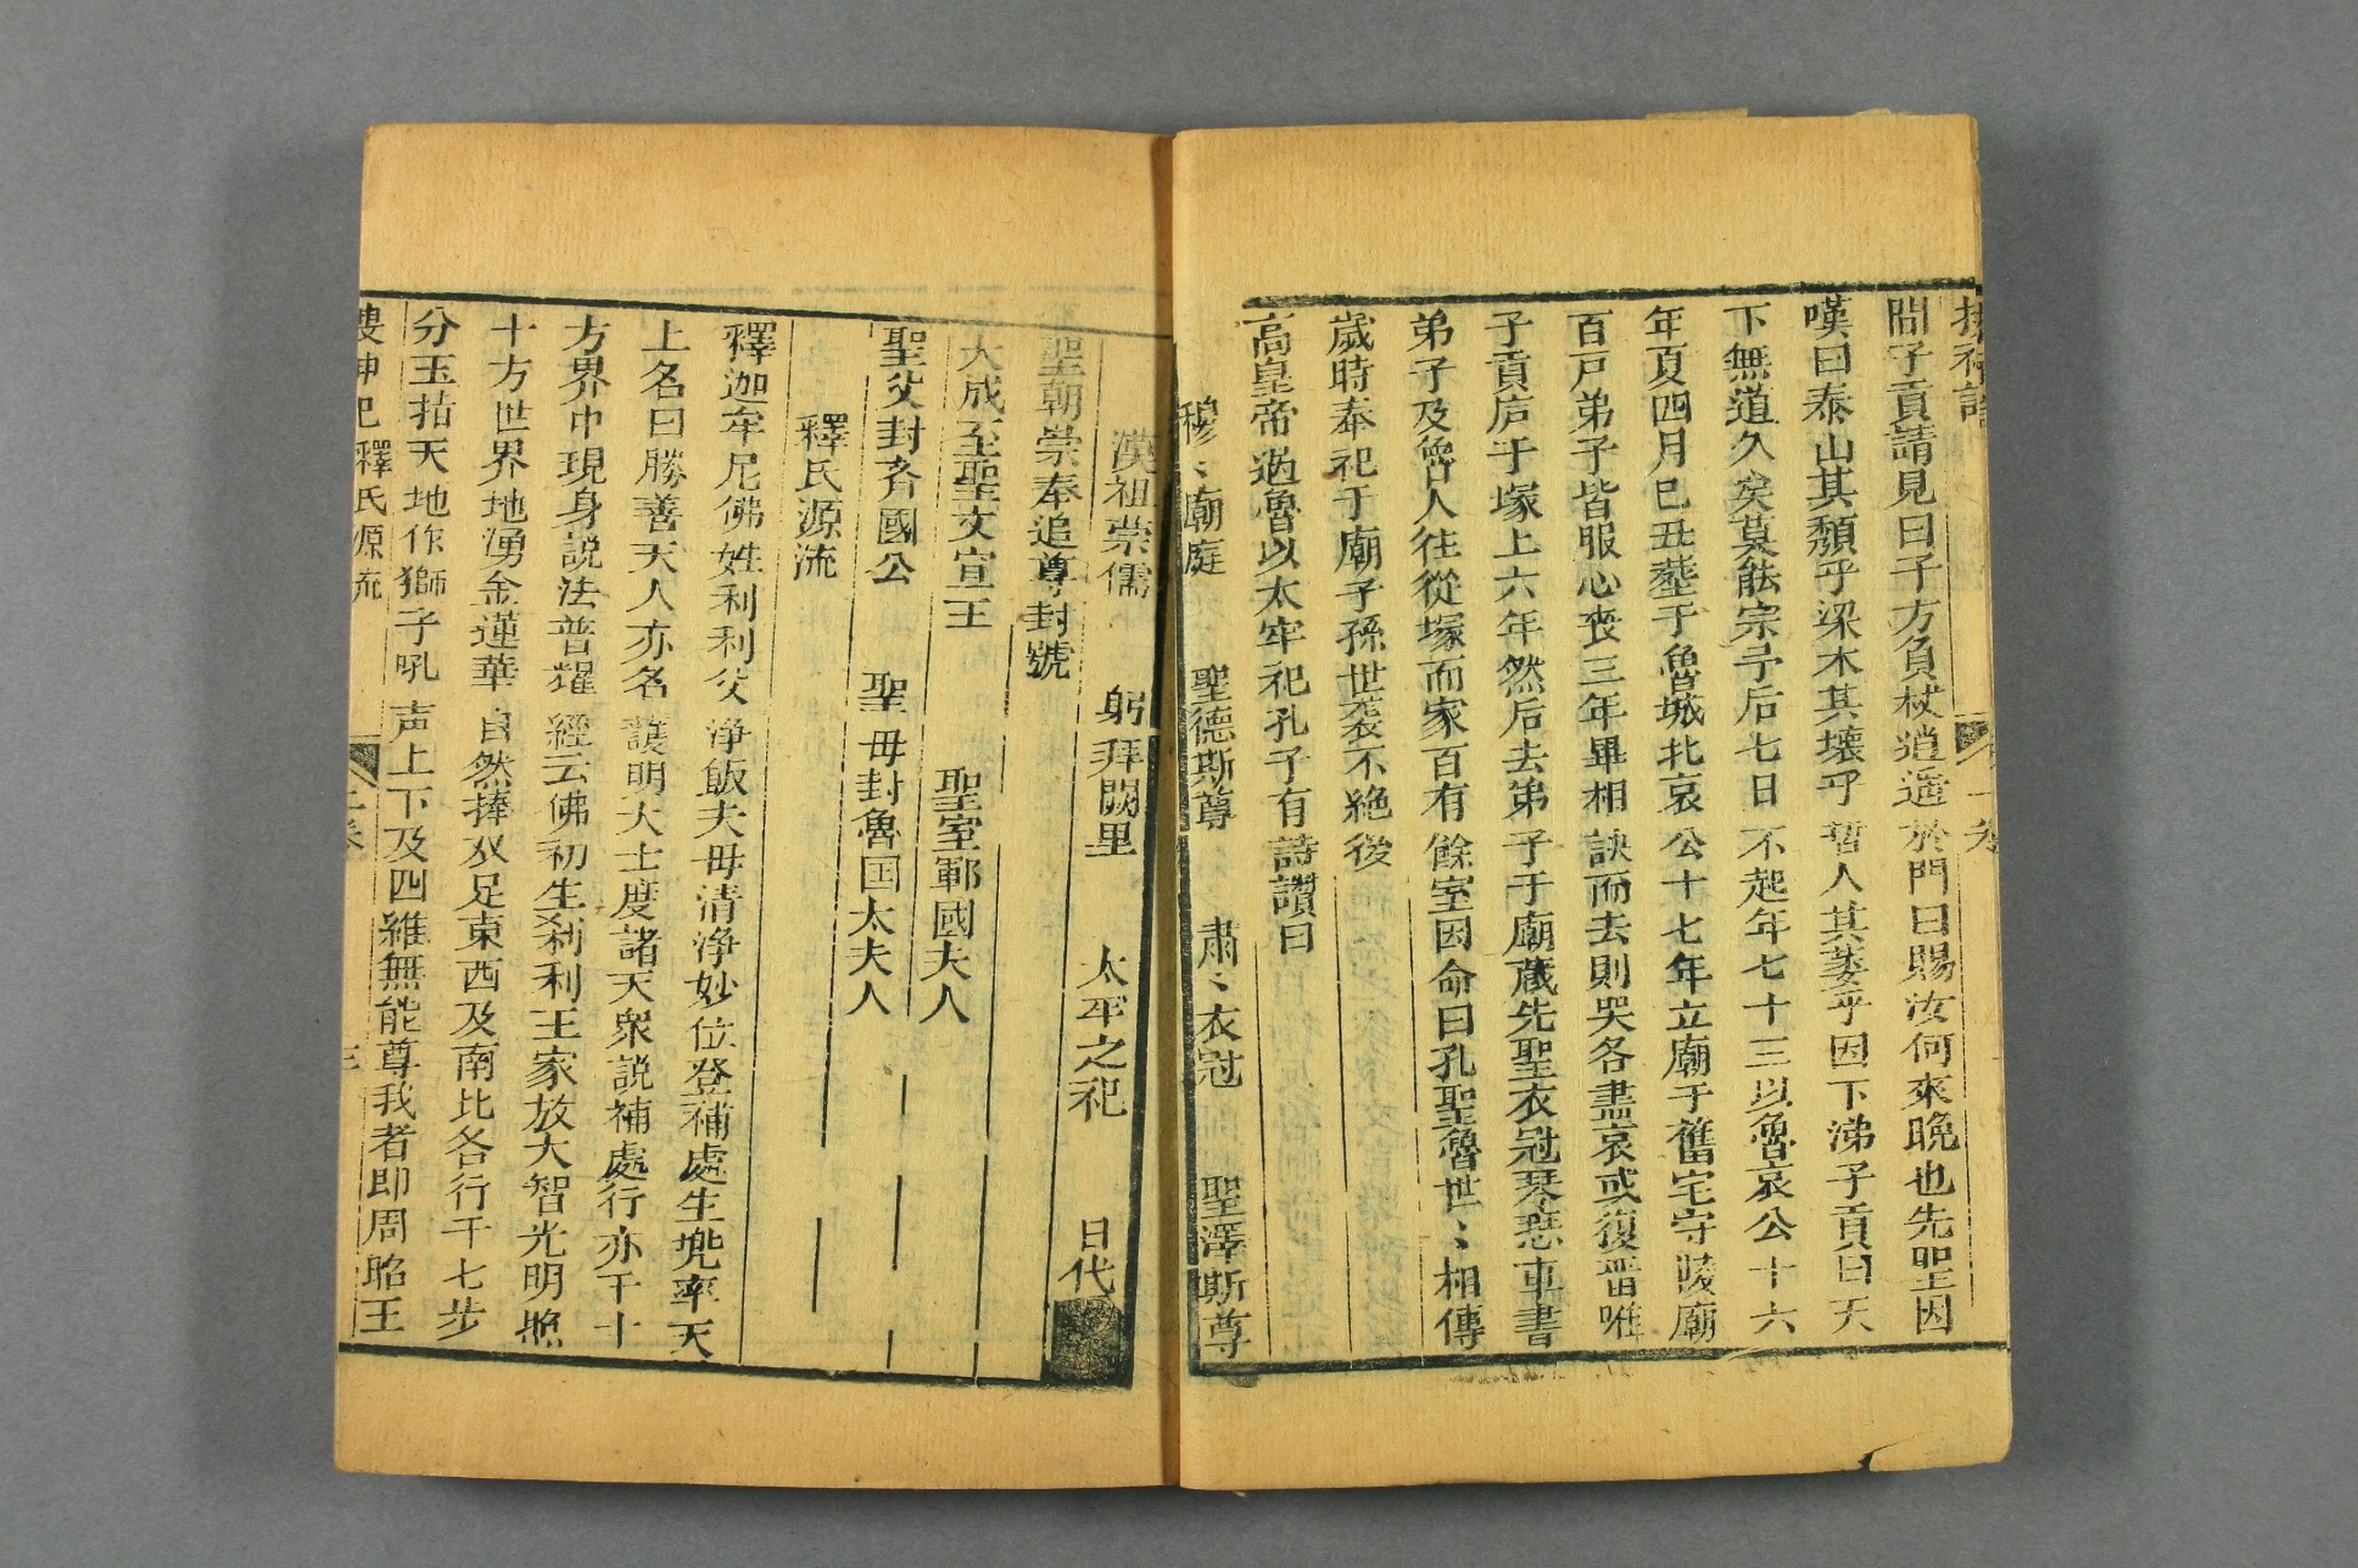 間子貢請見曰子方負杖逍遥於門曰賜汝何來晚也先聖因
嘆曰泰山其頽乎梁木其壞乎哲人其萎乎因下涕子貢曰天
下無道久矣莫能宗予后七日不起年七十三以魯哀公十六
年夏四月巳丑塟于魯城北哀公十七年立廟于舊宅守陵廟
百戸弟子皆服心丧三年畢相訣而去則哭各盡哀或復畱唯
子貢庐于塚上六年然后去弟子于廟蔵先聖衣冠琴𢈪車書
弟子及魯人往從塚而家百有餘室因命曰孔聖魯世〻相傳
歲時奉祀于廟子孫世裘不絶後
高皇帝過魯以太牢祀孔子有詩讃曰
穆〻廟庭　聖德斯尊　肅〻衣冠　聖澤斯尊
漢祖崇儒　躬拜闕里　太牢之祀　日代
聖朝崇奉追尊封號
大成至聖文宣王　聖室鄆國夫人
聖父封斉國公　聖母封魯国太夫人
釋氏源流
釋迦牟尼佛姓利利父淨飯夫母清淨妙位登補處生兠率天
上名曰勝善天人亦名護明大士度諸天衆説補處行亦于十
方界中現身説法普耀經云佛初生刹利王家放大智光明照
十方世界地湧金蓮華自然捧双足東西及南北各行于七步
分玉指天地作獅子吼声上下及四維無能尊我者即周昭王
釋氏源流